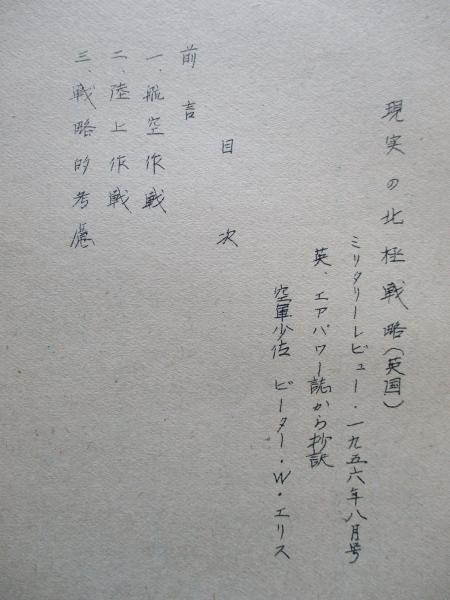 現実の北極戦略(英国)
ミリタリーレビュー・一九五六年八月号
英、エアパワー誌から抄訳
空軍少佐 ピーター・W・エリス
目次
前言
一、航空作戦
二、陸上作戦
三、戦略的考慮